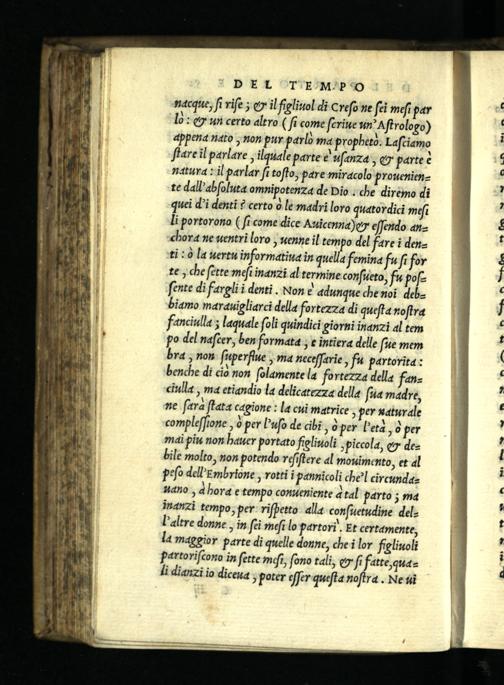 DEL TEMPO
nacque, si rise; & il figliuol di Creso ne sei mesi par
lò: & un certo altro (si come scriue un'Astrologo)
appena nato, non pur parlò ma prophetò. Lasciamo
stare il parlare, ilquale parte è usanza, & parte è
natura: il parlar sì tosto, pare miracolo prouenien=
te dall'absoluta omnipotenza de Dio. che diremo di
quei d'i denti? certo ò le madri loro quatordici mesi
li portorono (si come dice Auicenna) & essendo an=
chora ne uentri loro, uenne il tempo del fare i den=
ti: ò la uertu informatiua in quella femina fu si for
te, che sette mesi inanzi al termine consueto, fu pos=
sente di fargli i denti. Non è adunque che noi deb=
biamo marauigliarci della fortezza di questa nostra
fanciulla; laquale soli quindici giorni inanzi al tem
po del nascer, ben formata, e intiera delle sue mem
bra, non superflue, ma necessarie, fu partorita:
benche di ciò non solamente la fortezza della fan=
ciulla, ma etiandio la delicatezza della sua madre,
ne sarà stata cagione: la cui matrice, per naturale
complessione, ò per l'uso de cibi, ò per l'età, ò per
mai piu non hauer portato figliuoli, piccola, & de=
bile molto, non potendo resistere al mouimento, et al
peso dell'Embrione, rotti i pannicoli che'l circunda=
uano, à hora e tempo conueniente à tal parto; ma
inanzi tempo, per rispetto alla consuetudine del=
l'altre donne, in sei mesi lo partorì. Et certamente,
la maggior parte di quelle donne, che i lor figliuoli
partoriscono in sette mesi, sono tali, & sì fatte, qua=
li dianzi io diceua, poter esser questa nostra. Ne ui